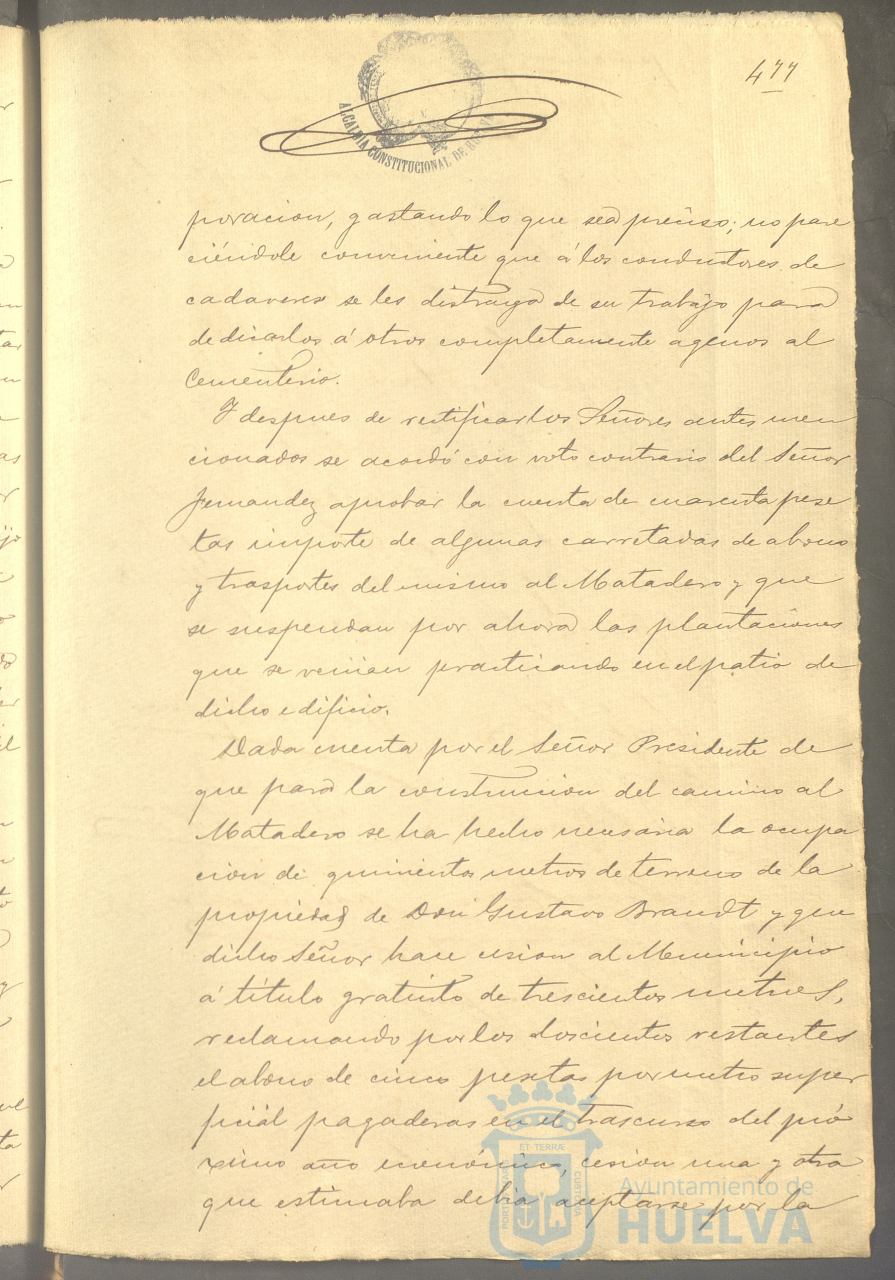 477
ALCALDIA CONSTITUCIONAL DE HUELVA
poracion, gastando lo que sea preciso; no pare
ciéndole conveniente que á los conductores de
cadaveres se les distraiga de su trabajo para
dedicarlos á otros completamente agenos al
Cementerio.
Y despues de rectificar los Señores antes men
cionados se acordó con voto contrario del Señor
Fernandez aprobar la cuenta de cuarenta pese
tas importe de algunas carretadas de abono
y trasportes del mismo al Matadero y que
se suspendan por ahora las plantaciones
que se venian practicando en el patio de
dicho edificio.
Dada cuenta por el Señor Presidente de
que para la construccion del camino al
Matadero se ha hecho necesaria la ocupa
cion de quinientos metros de terreno de la
propiedad de Don Gustavo Brandt y que
dicho Señor hace cesion al Municipio
á título gratuito de trescientos metros,
reclamando por los doscientos restantes
el abono de cinco pesetas por metro super
ficial pagaderas en el trascurso del pró
ximo año económico, cesion una y otra
que estimaba debia aceptarse por la
PORTUS MARIS ET TERRÆ CUSTODIA
Ayuntamiento de
HUELVA